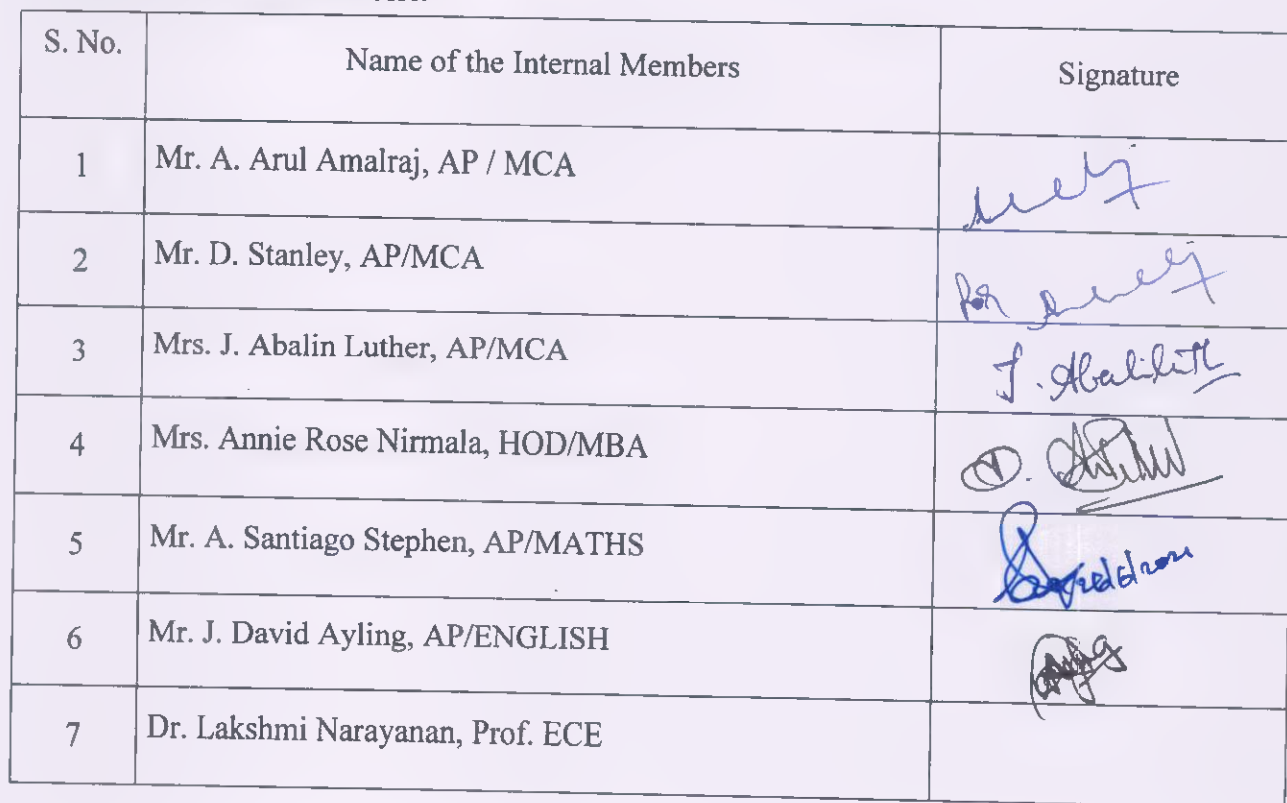 S. No. Name of the Internal Members Signature
1 Mr. A. Arul Amalraj, AP / MCA
2 Mr. D. Stanley, AP/MCA for
3 Mrs. J. Abalin Luther, AP/MCA J.
4 Mrs. Annie Rose Nirmala, HOD/MBA
5 Mr. A. Santiago Stephen, AP/MATHS
6 Mr. J. David Ayling, AP/ENGLISH
7 Dr. Lakshmi Narayanan, Prof. ECE